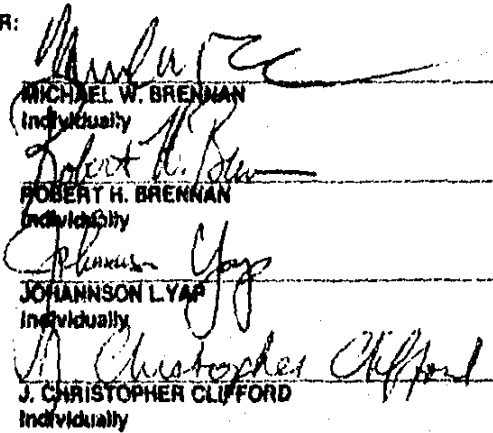 R:
MICHAEL W. BRENNAN
Individually
Robert H. Bren
ROBERT H. BRENNAN
Individually
Johannson Yap
JOHANNSON L. YAP
Individually
J. Christopher Clifford
J. CHRISTOPHER CLIFFORD
Individually